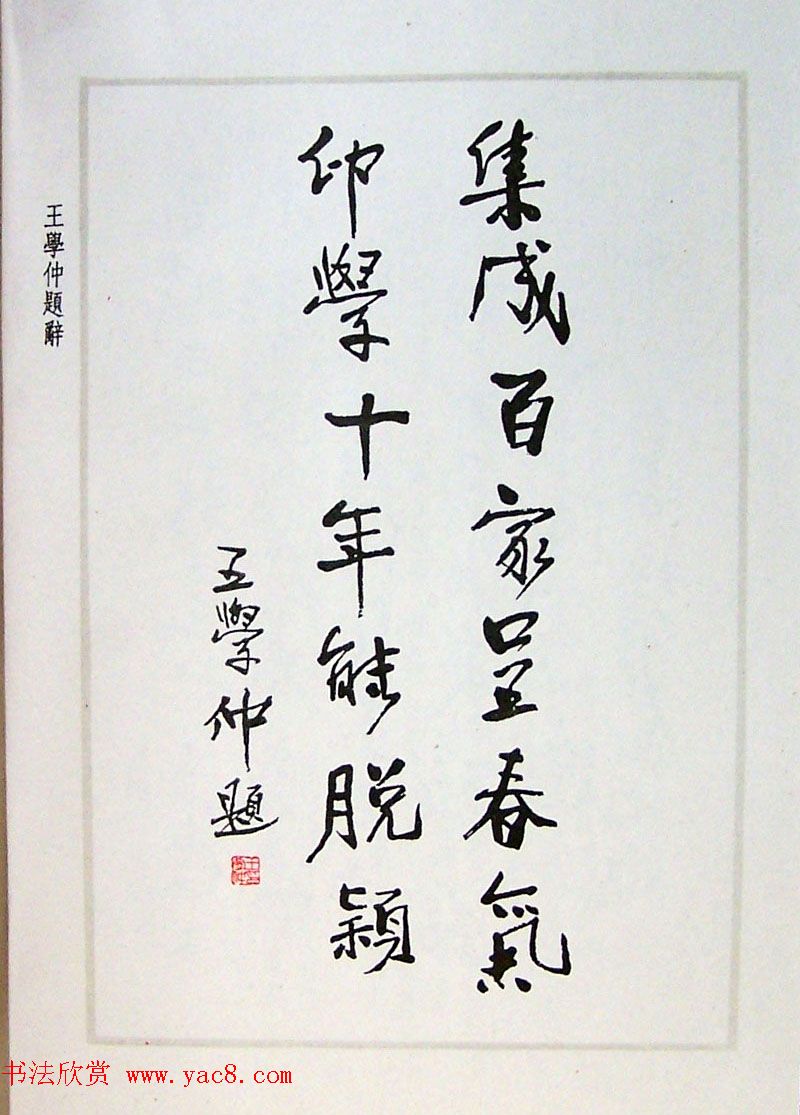 集成百家呈春氣
印學十年能脫穎
王學仲題
王學仲題辭
书法欣赏 www.yac8.com